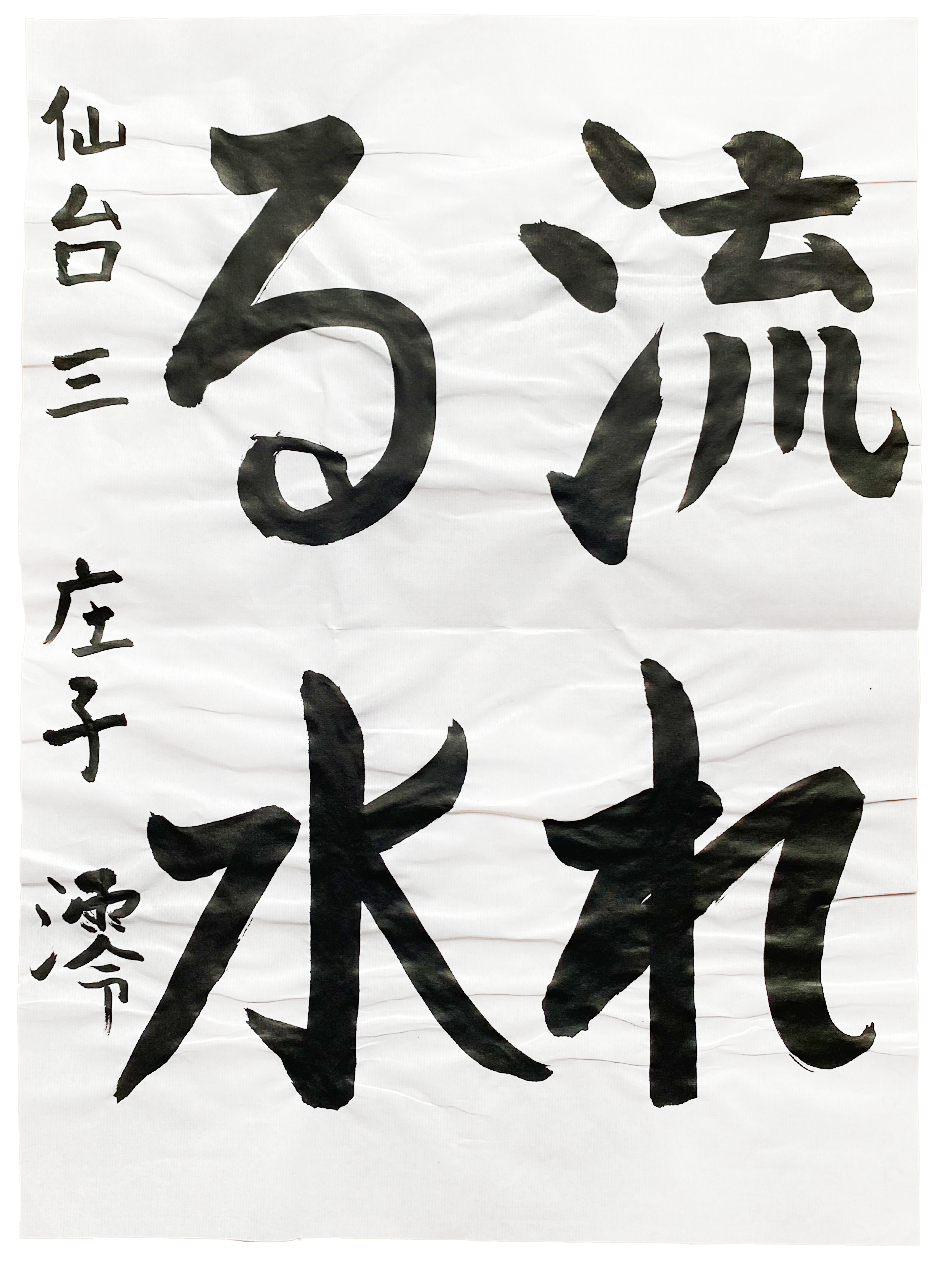 流れ
る水
仙台三 庄子 澪